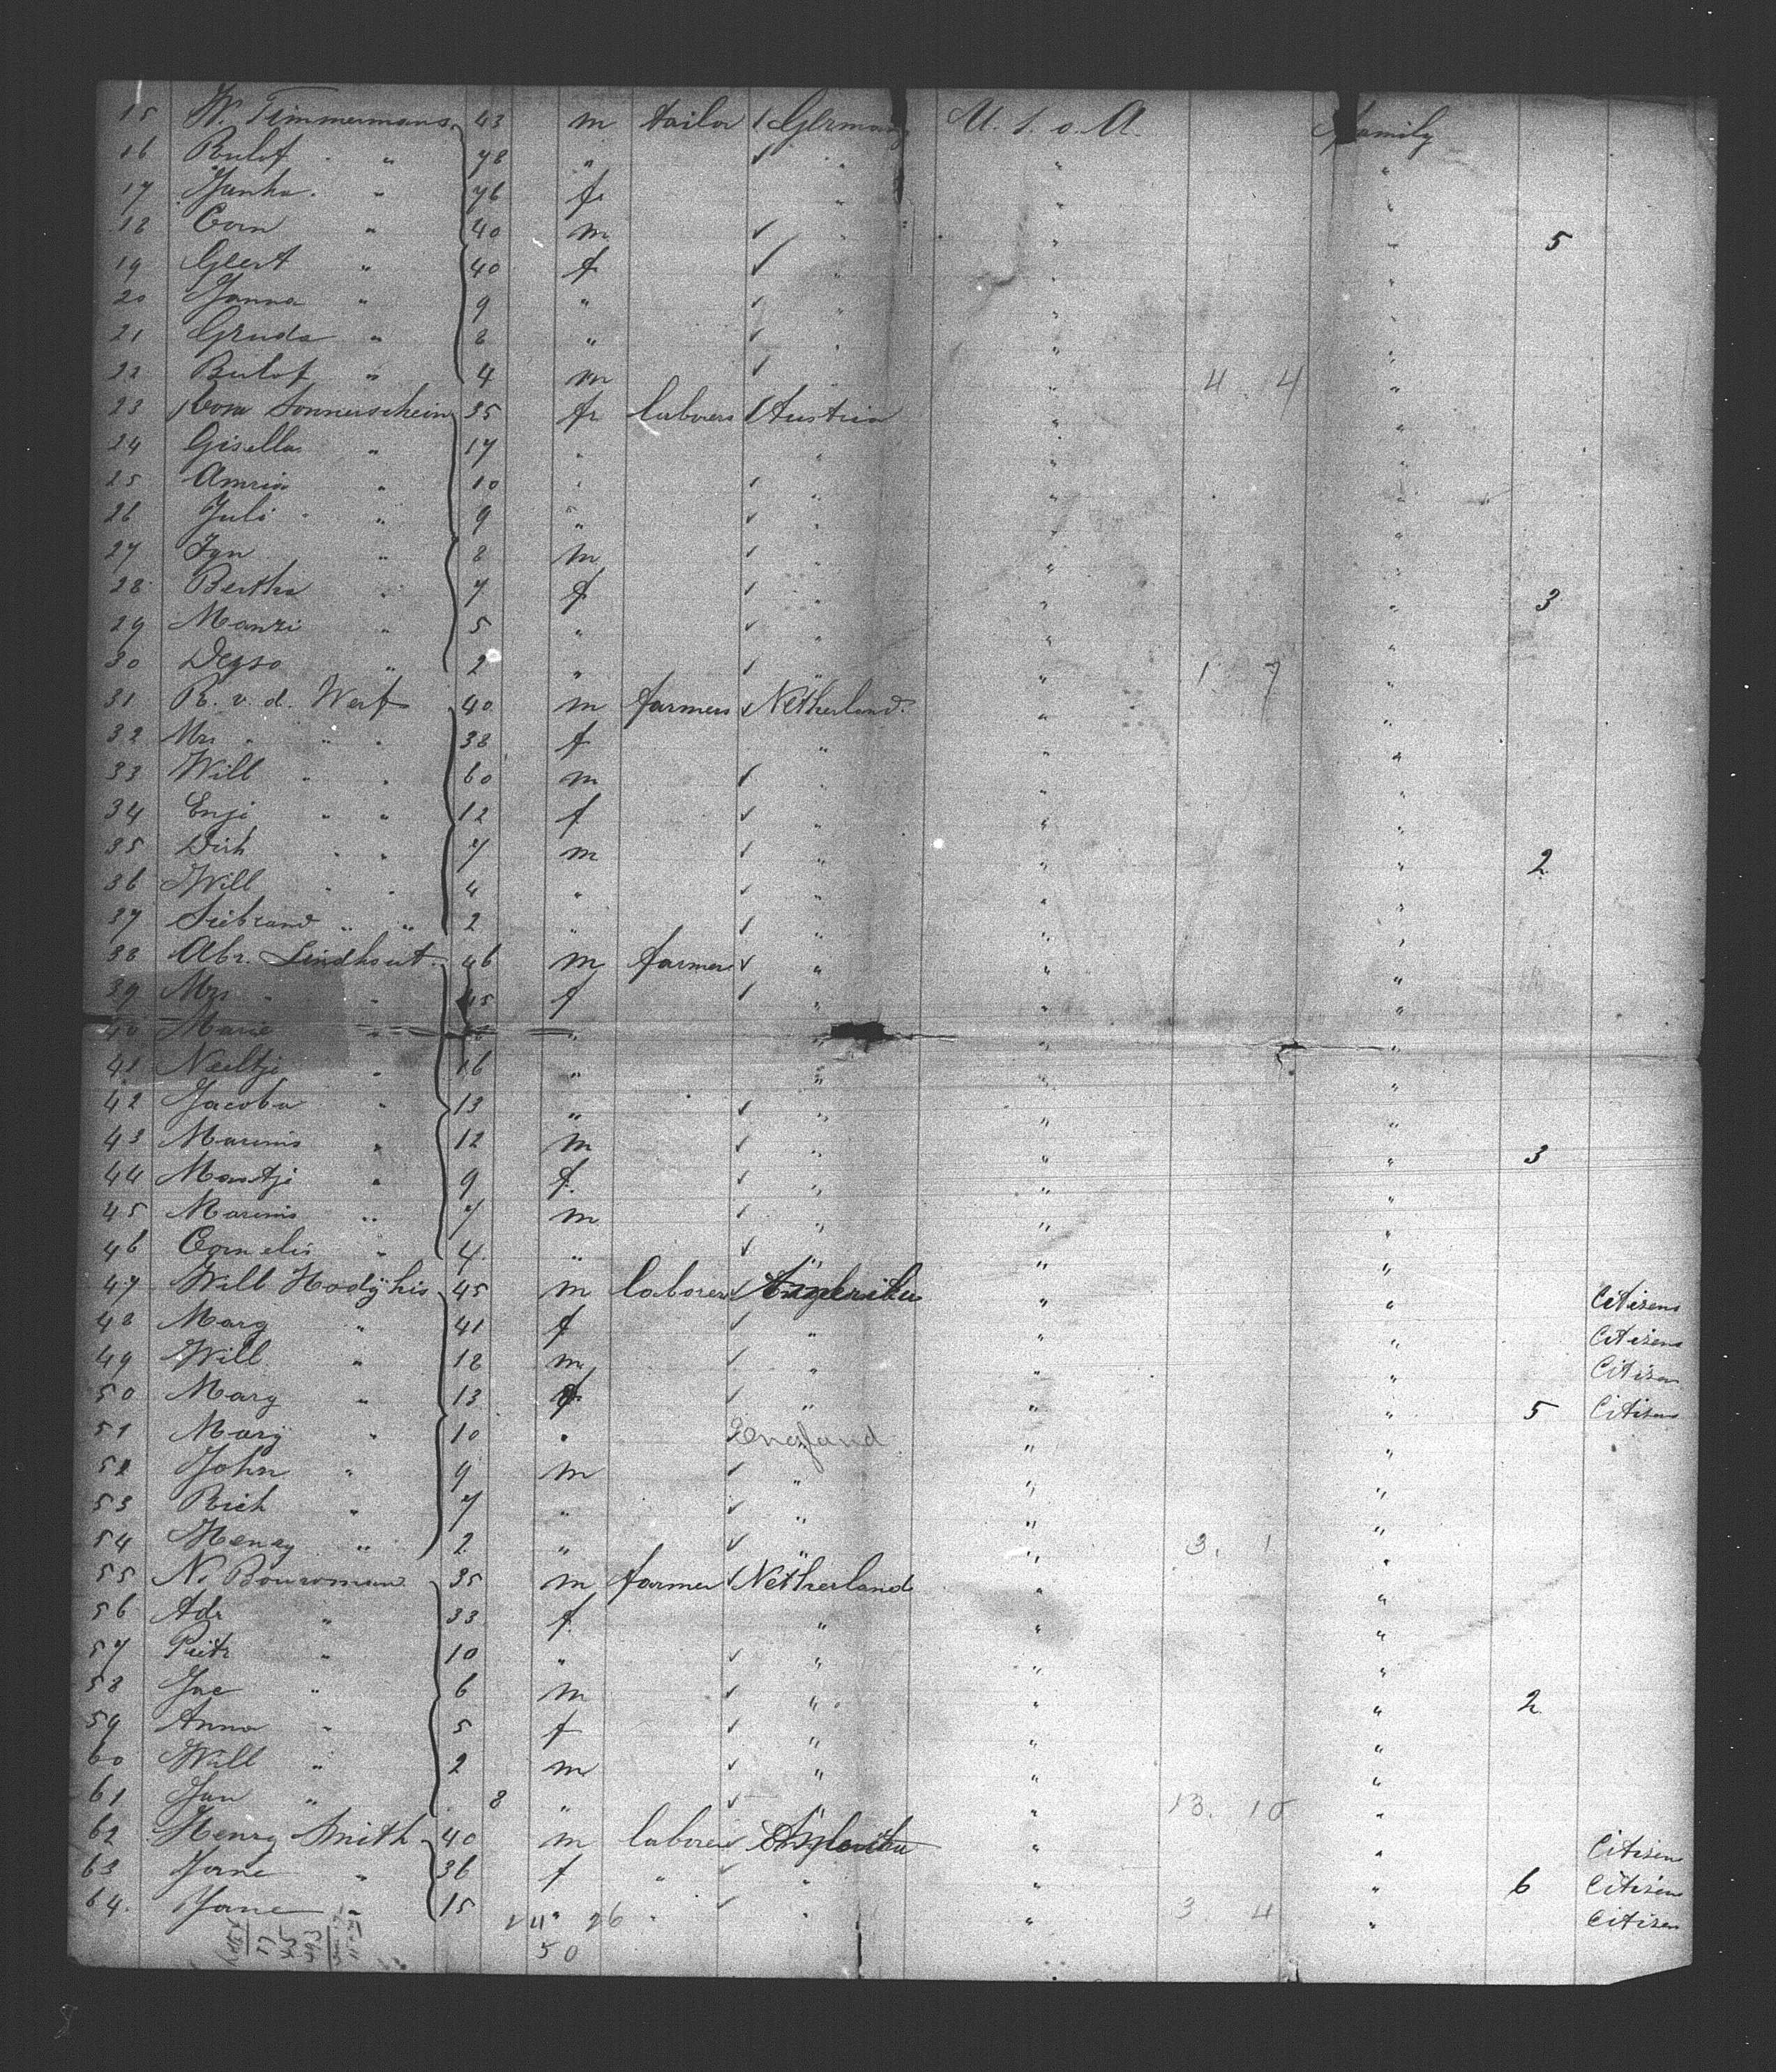 15 W. Timmermans 43 m tailor Germany U. S. o. A. Family
16 Rulof " " 78 " ✓ " " "
17 Janka " 76 f " " "
18 Corn " 40 m ✓ " " " 5
19 Geert " 40 f ✓ " " "
20 Janna " 9 " ✓ " " "
21 Gruda " 8 " ✓ " " "
22 Rulof " 4 m ✓ " 4 4 "
23 Sonnerschein 35 f laborers Austria " "
24 Gisella " 17 " " " "
25 Amria " 10 " ✓ " " "
26 Juli " 9 " ✓ " " "
27 Ign " 8 m ✓ " " "
28 Bertha " 7 f ✓ " " " 3
29 Manzi " 5 " ✓ " " "
30 " 2 " ✓ " " 1 7 "
31 R. v. d. Werf 40 m farmers Netherland. " "
32 Mrs " " " 38 f " " "
33 Will " " 60 m ✓ " " "
34 Enji " " 12 f ✓ " " "
35 Dirk " " 7 m ✓ " " " 2
36 Will " " 4 " ✓ " " "
37 Siebrand " " 2 " ✓ " " "
38 Abr. Lindhout 46 m farmers ✓ " " "
39 Mrs " " 45 f ✓ " " "
40 Marie " " " " "
41 Neeltje " 16 " " " "
42 Jacoba " 13 " ✓ " " "
43 Marinis " 12 m ✓ " " " 3
44 Mantji " 9 f. ✓ " " "
45 Marinis " 7 m ✓ " " "
46 Cornelis " 4. " ✓ " " "
47 Will Hodÿhis 45 m laborers " " Citizens
48 Marg " 41 f ✓ " " " Citizens
49 Will " 18 m ✓ " " " Citizen
50 Mary " 13 f ✓ " " " 5 Citizens
51 Marÿ " 10 " England " "
52 John " 9 m ✓ " " "
53 Rich " 7 " ✓ " " "
54 Henry " 2 " ✓ " " 3. 1 "
55 N. Bouwman 35 m farmer Netherland " "
56 Adr " 33 f. " " "
57 Pietr " 10 " ✓ " " "
58 Jac " 6 m ✓ " " " 2
59 Anna " 5 f ✓ " " "
60 Will " 2 m ✓ " " "
61 Jan " 8 " ✓ " " 13. 10 "
62 Henry Smith 40 m laborers " " Citizens
63 Jane " 36 f " ✓ " " " 6 Citizen
64. Jane " 15 " ✓ " " 3 4 " Citizen
26
50